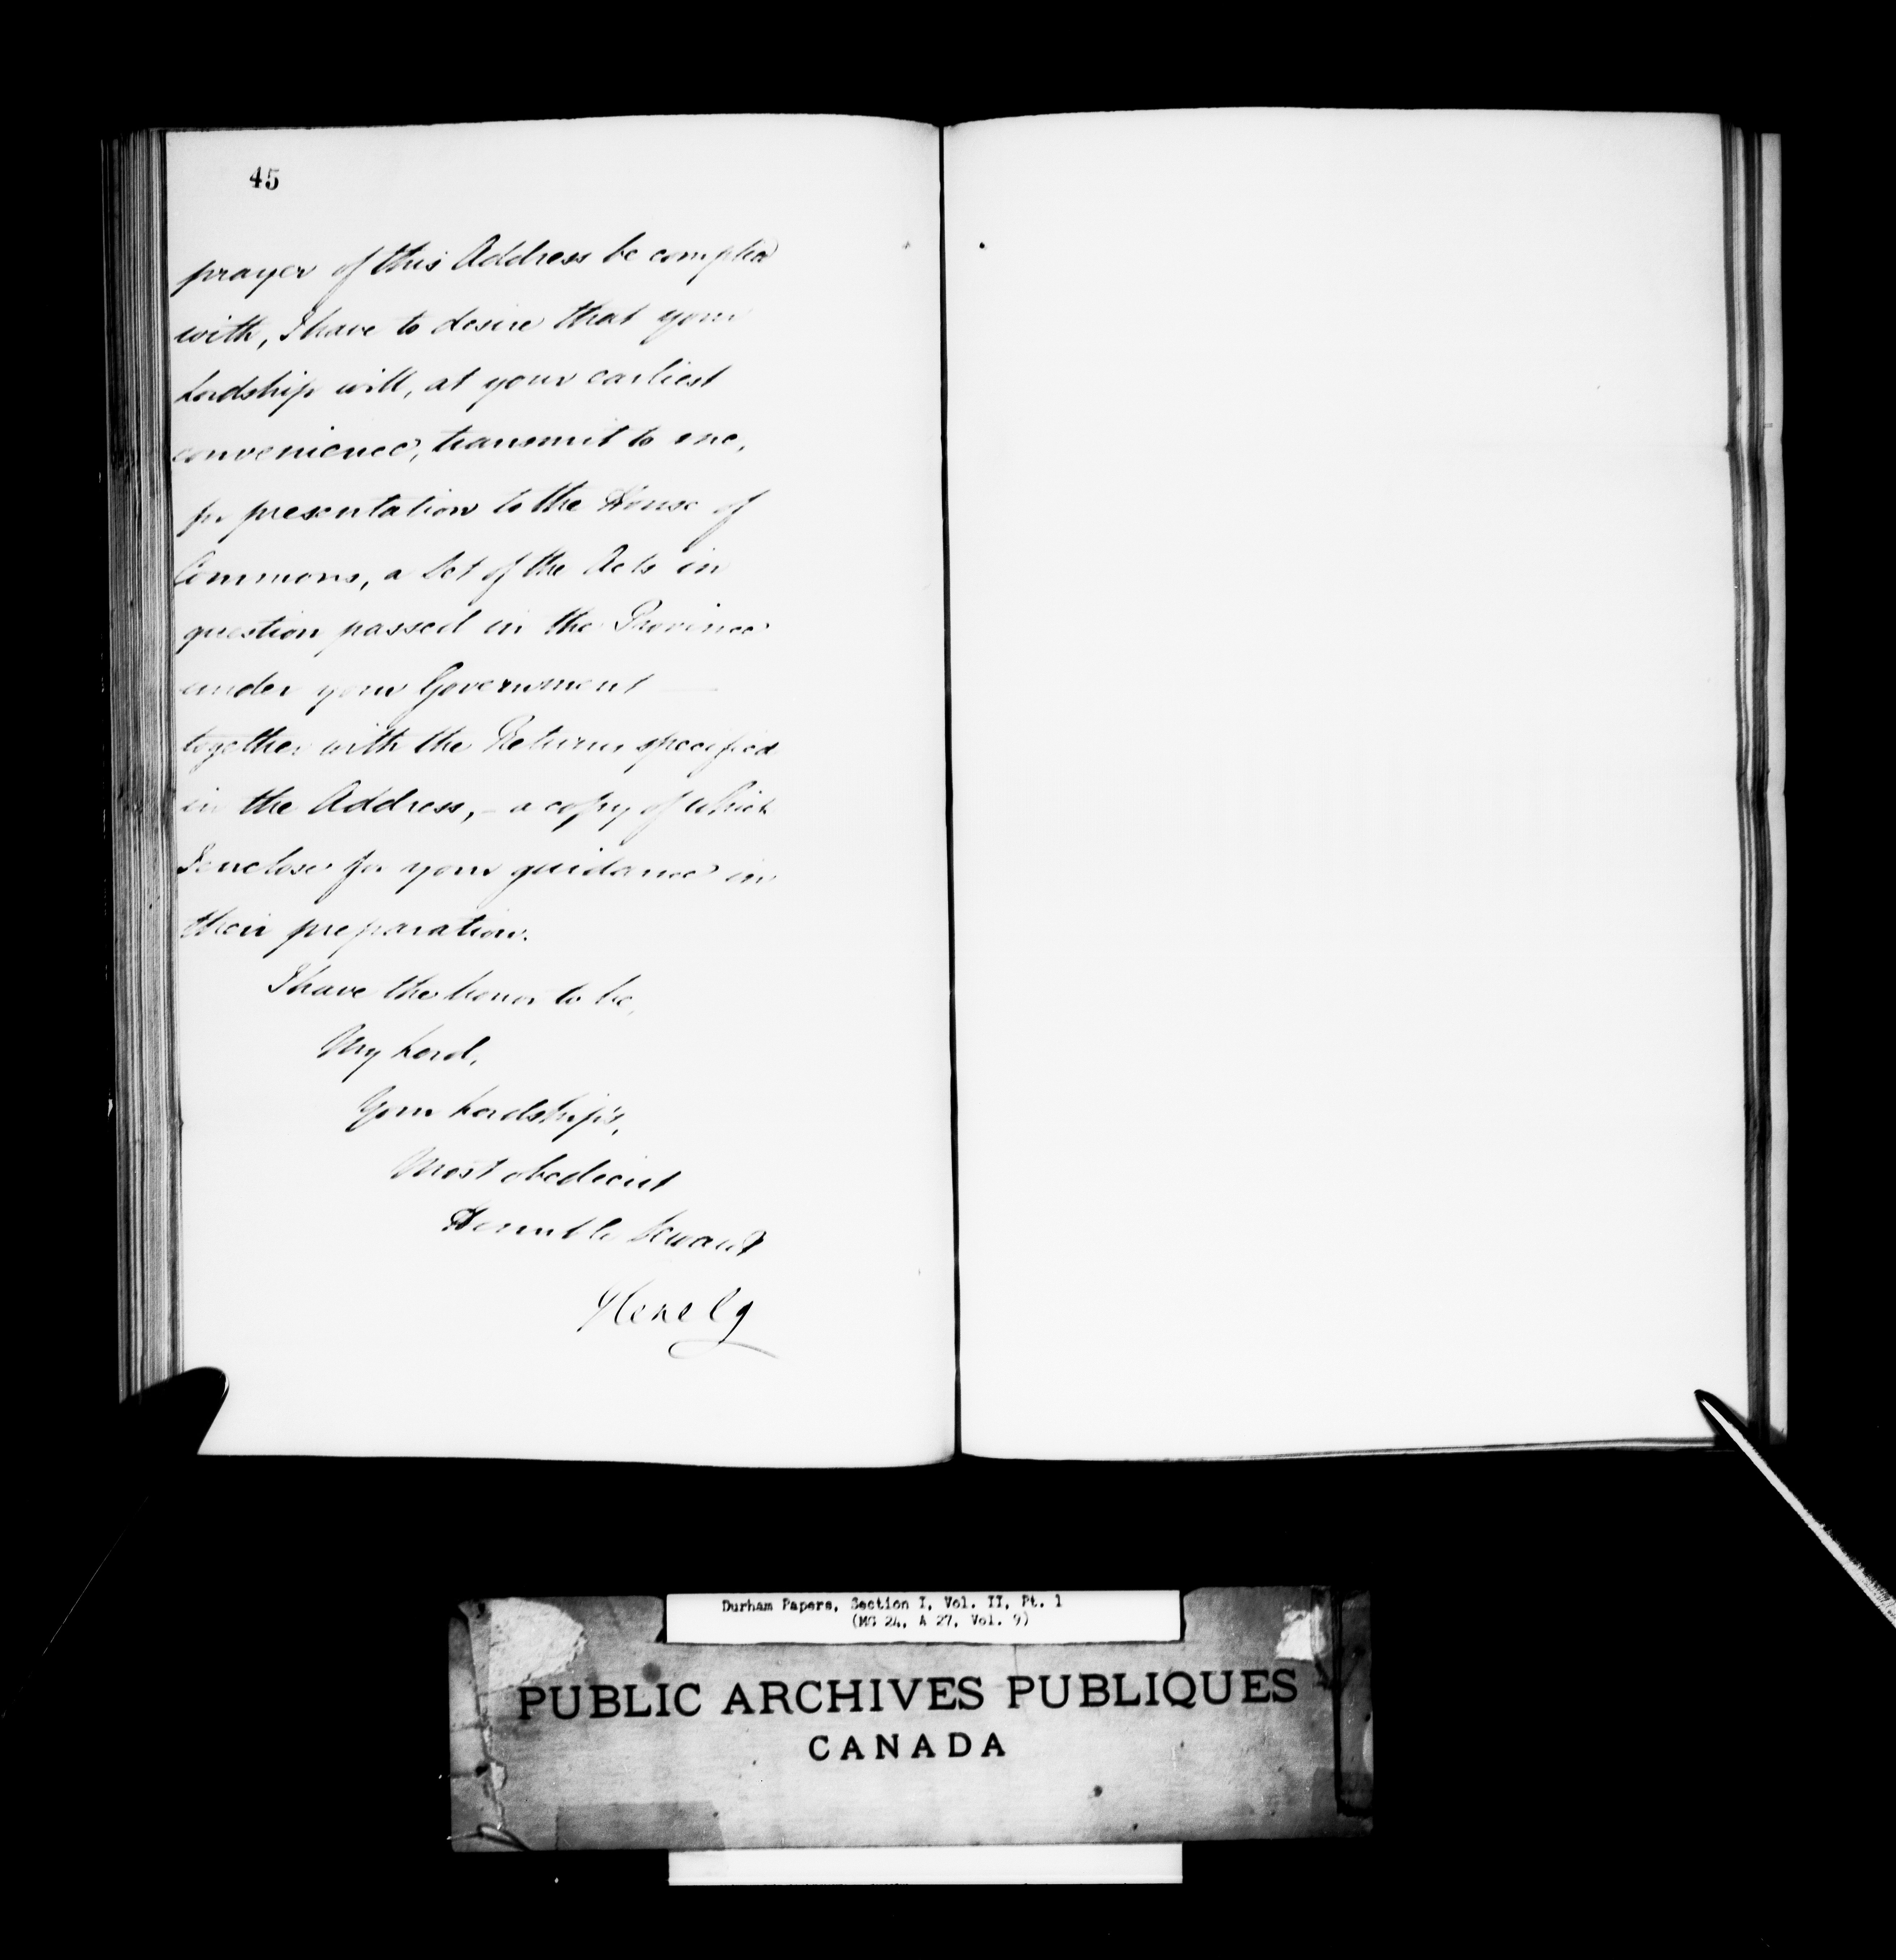 45
prayer of this Address be complied
with, I have to desire that your
Lordship will, at your earliest
convenience, transmit to me,
for presentation to the House of
Commons, a Set of the Acts in
question passed in the Province
under your Government —
together with the Returns specified
in the Address, – a copy of which
I enclose for your guidance in
their preparation.
I have the honor to be,
My Lord,
Your Lordship's,
Most obedient
Humble Servant
Glenelg
Durham Papers, Section I, Vol. II, Pt. 1
(MG 24, A 27, Vol. 9)
PUBLIC ARCHIVES PUBLIQUES
CANADA